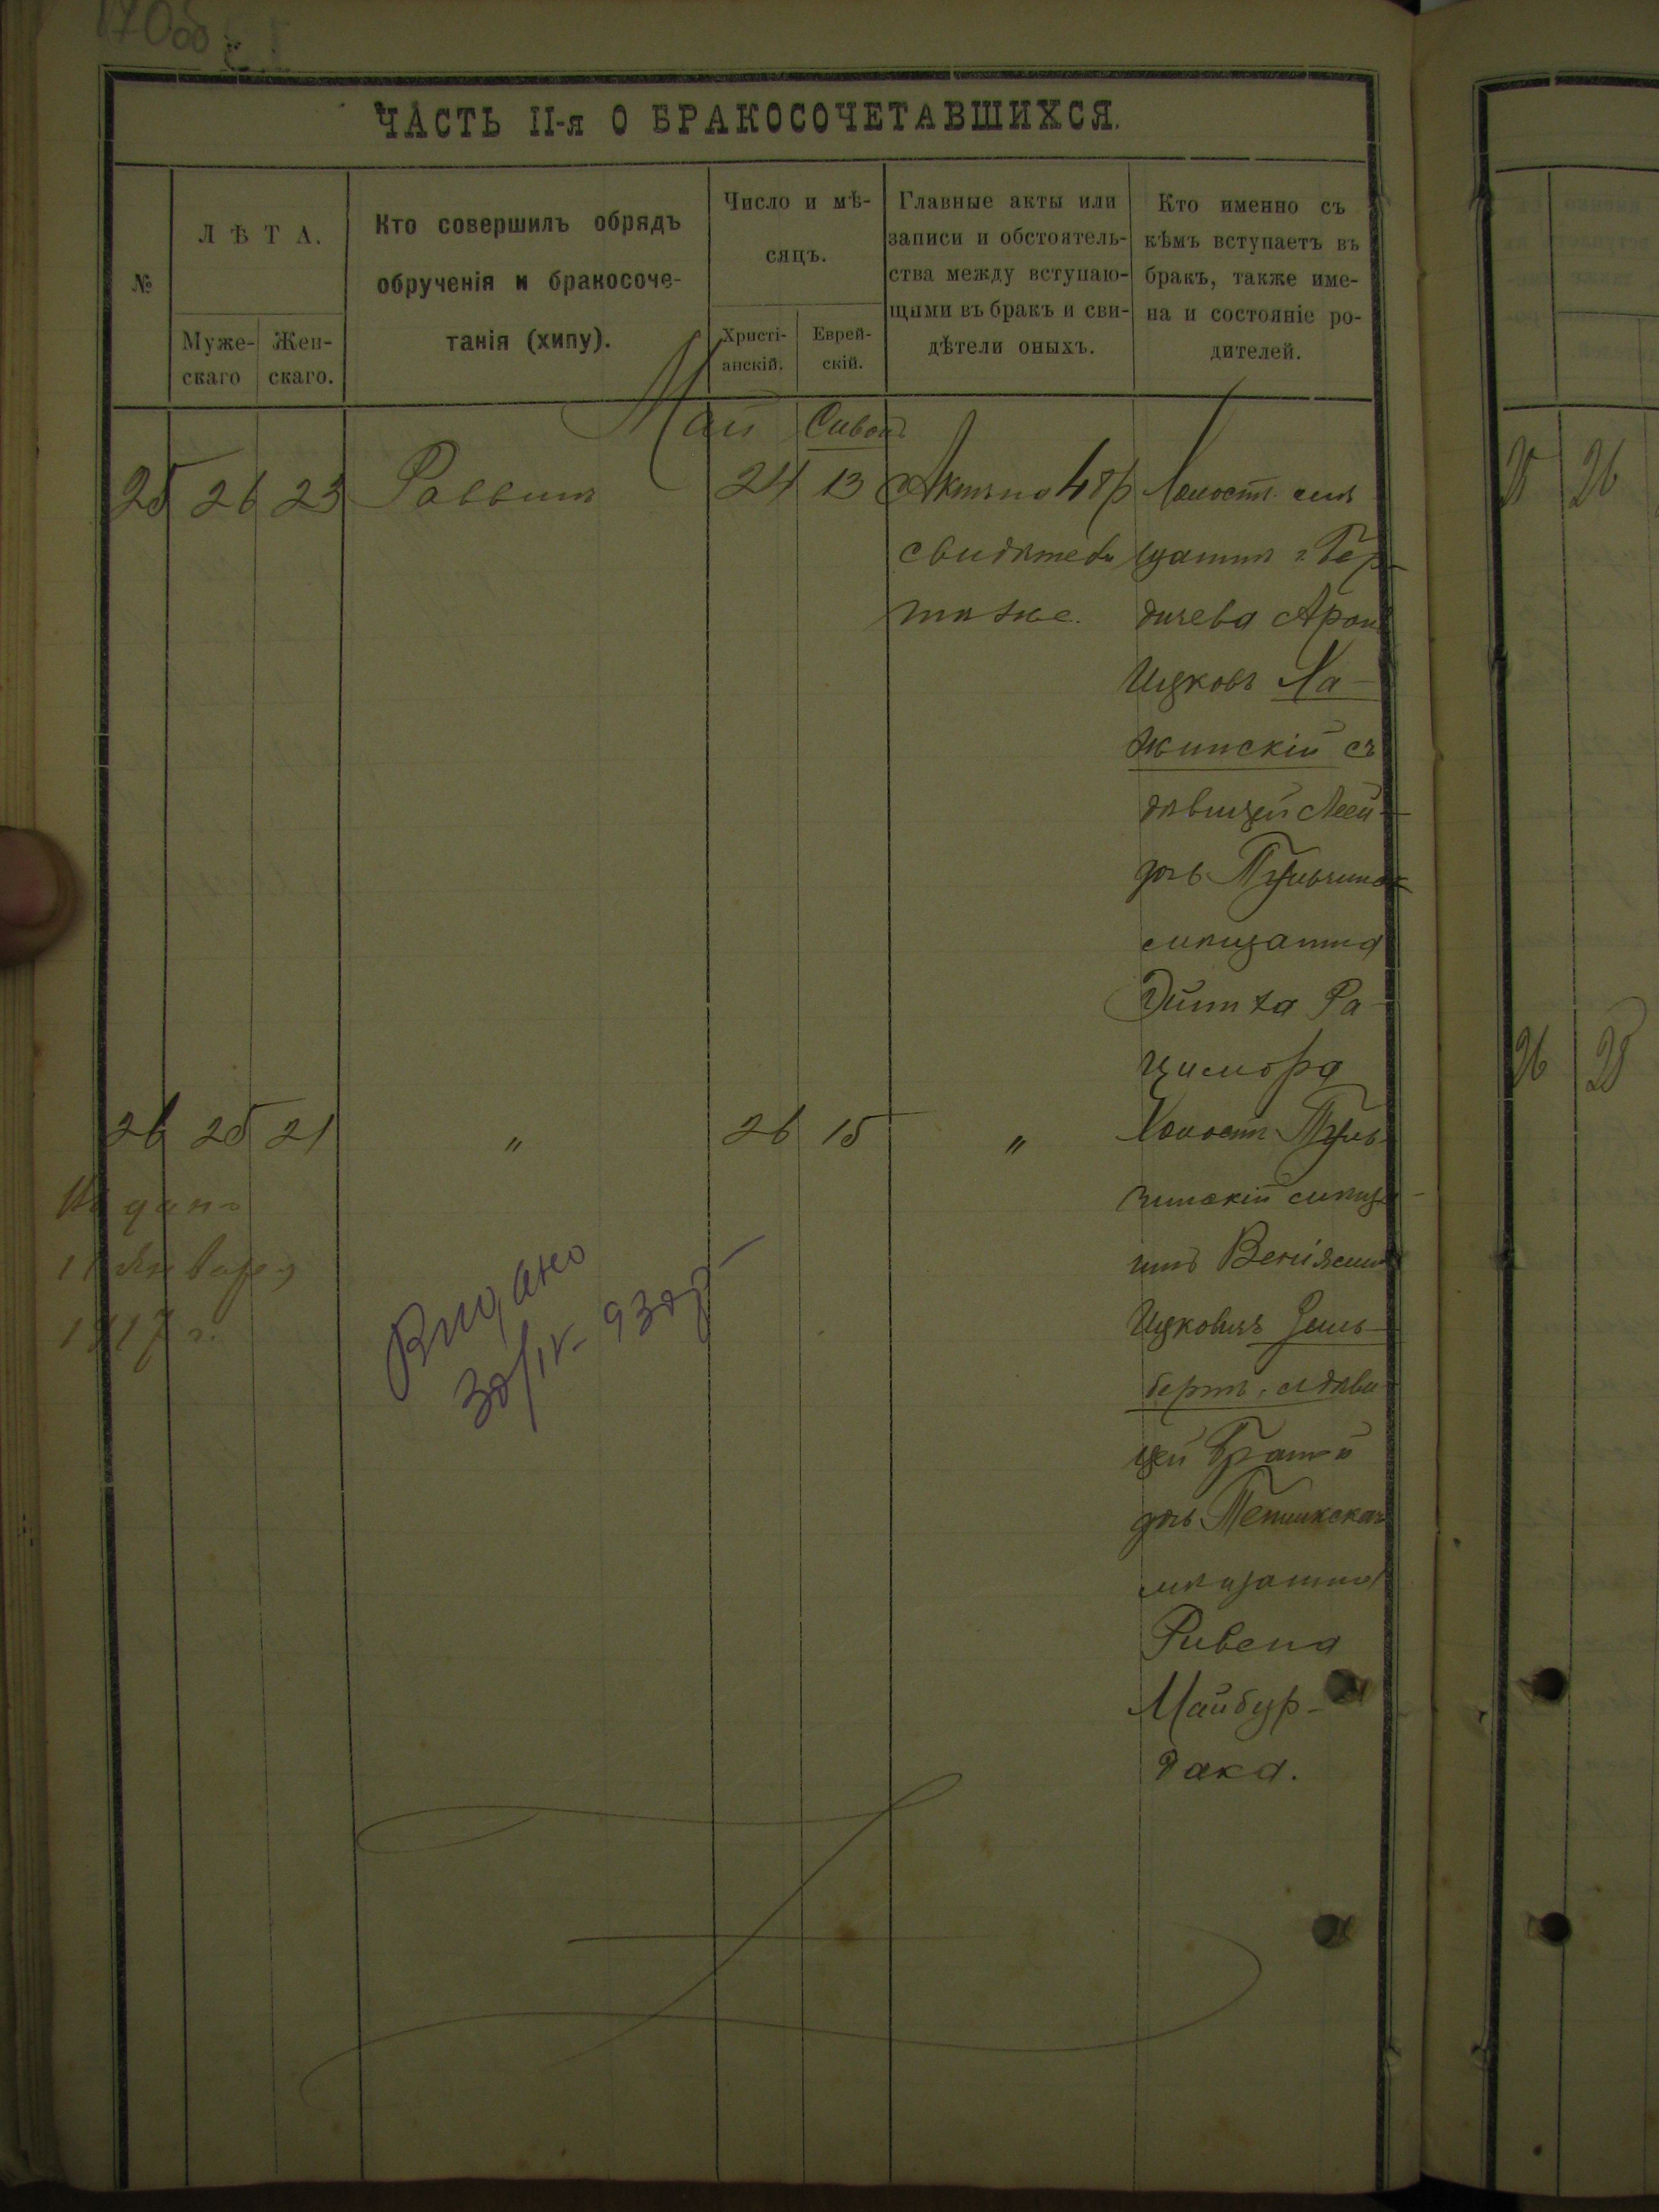 ЧАСТЬ II-я О БРАКОСОЧЕТАВШИХСЯ.
№
ЛѢТА.
Муже-
скаго
Жен-
скаго.
Кто совершилъ обрядъ
обрученія и бракосоче-
танія (хипу).
Число и мѣ-
сяцъ.
Христі-
анскій.
Еврей-
скій.
Главные акты или
записи и обстоятель-
ства между вступаю-
щими въ бракъ и сви-
дѣтели оныхъ.
Кто именно съ
кѣмъ вступаетъ въ
бракъ, также име-
на и состояніе ро-
дителей.
Май Сивонъ
25 26 23 Раввинъ 24 13 Актъ на 48 р
свидѣтели
тѣ же.
Холост.
щанинъ г. Бер-
дичева Арон
Ицковъ Ха-
жинскій съ
дѣвицей Леей
дочь Тульчинск
мѣщанина
Ра-
цимора
26 25 21 " 26 15 " Холостъ Туль-
чинскій мѣща-
нинъ Веніямин
Ицковичъ Зиль-
бертъ, с дѣви-
цей
дочь Тепликскаго
мѣщанина
Рувена
Майбур-
дака.
Выдано
11 Января
1917 г.
Видано
30/IV-93 р
25 26
26 25